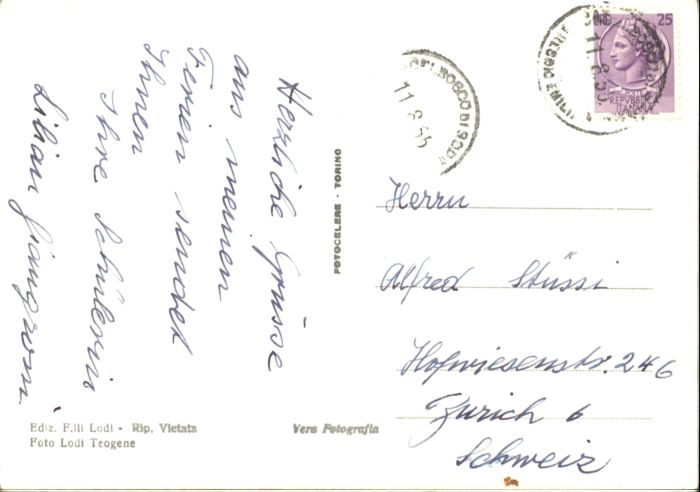 Herzliche Grüsse
aus meinen
Ferien sendet
Ihnen
Ihre Schülerin
Lilian
FOTOCELERE - TORINO
Ediz. F.lli Lodi - Rip. Vietata
Foto Lodi Teogene
Vera Fotografia
25
REPVBBLICA
ITALIANA
11.8.55
Herrn
Alfred Stüssi
Hofwiesenstr. 246
Zürich 6
Schweiz